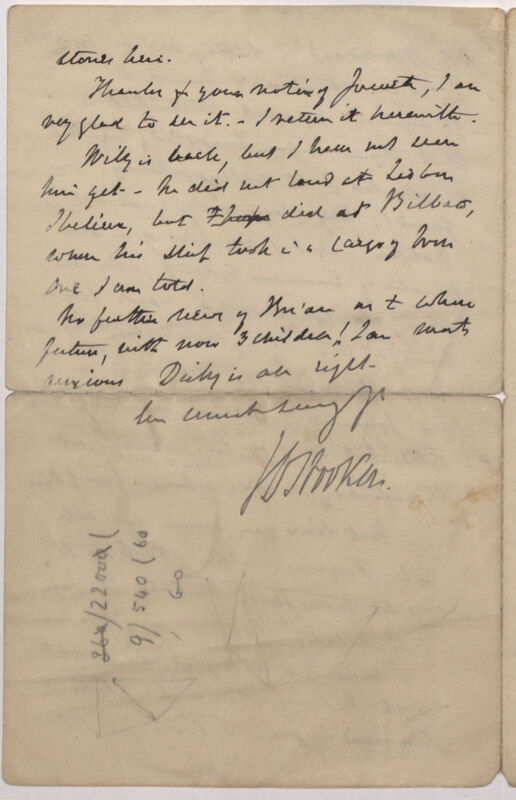 stones here.
Thanks for your noting of Jowett, I am
very glad to see it. - I return it herewith.
Willy is back, but I have not seen
him yet - he did not land at Lisbon
I believe, but did at Bilbao,
when his ship took in a cargo of Iron
ore I am told.
No further news of Brian as to where
future, with now 3 children! I am most
anxious Dicky is all right.
JD Hooker.
360/22000(
9/540(60
60